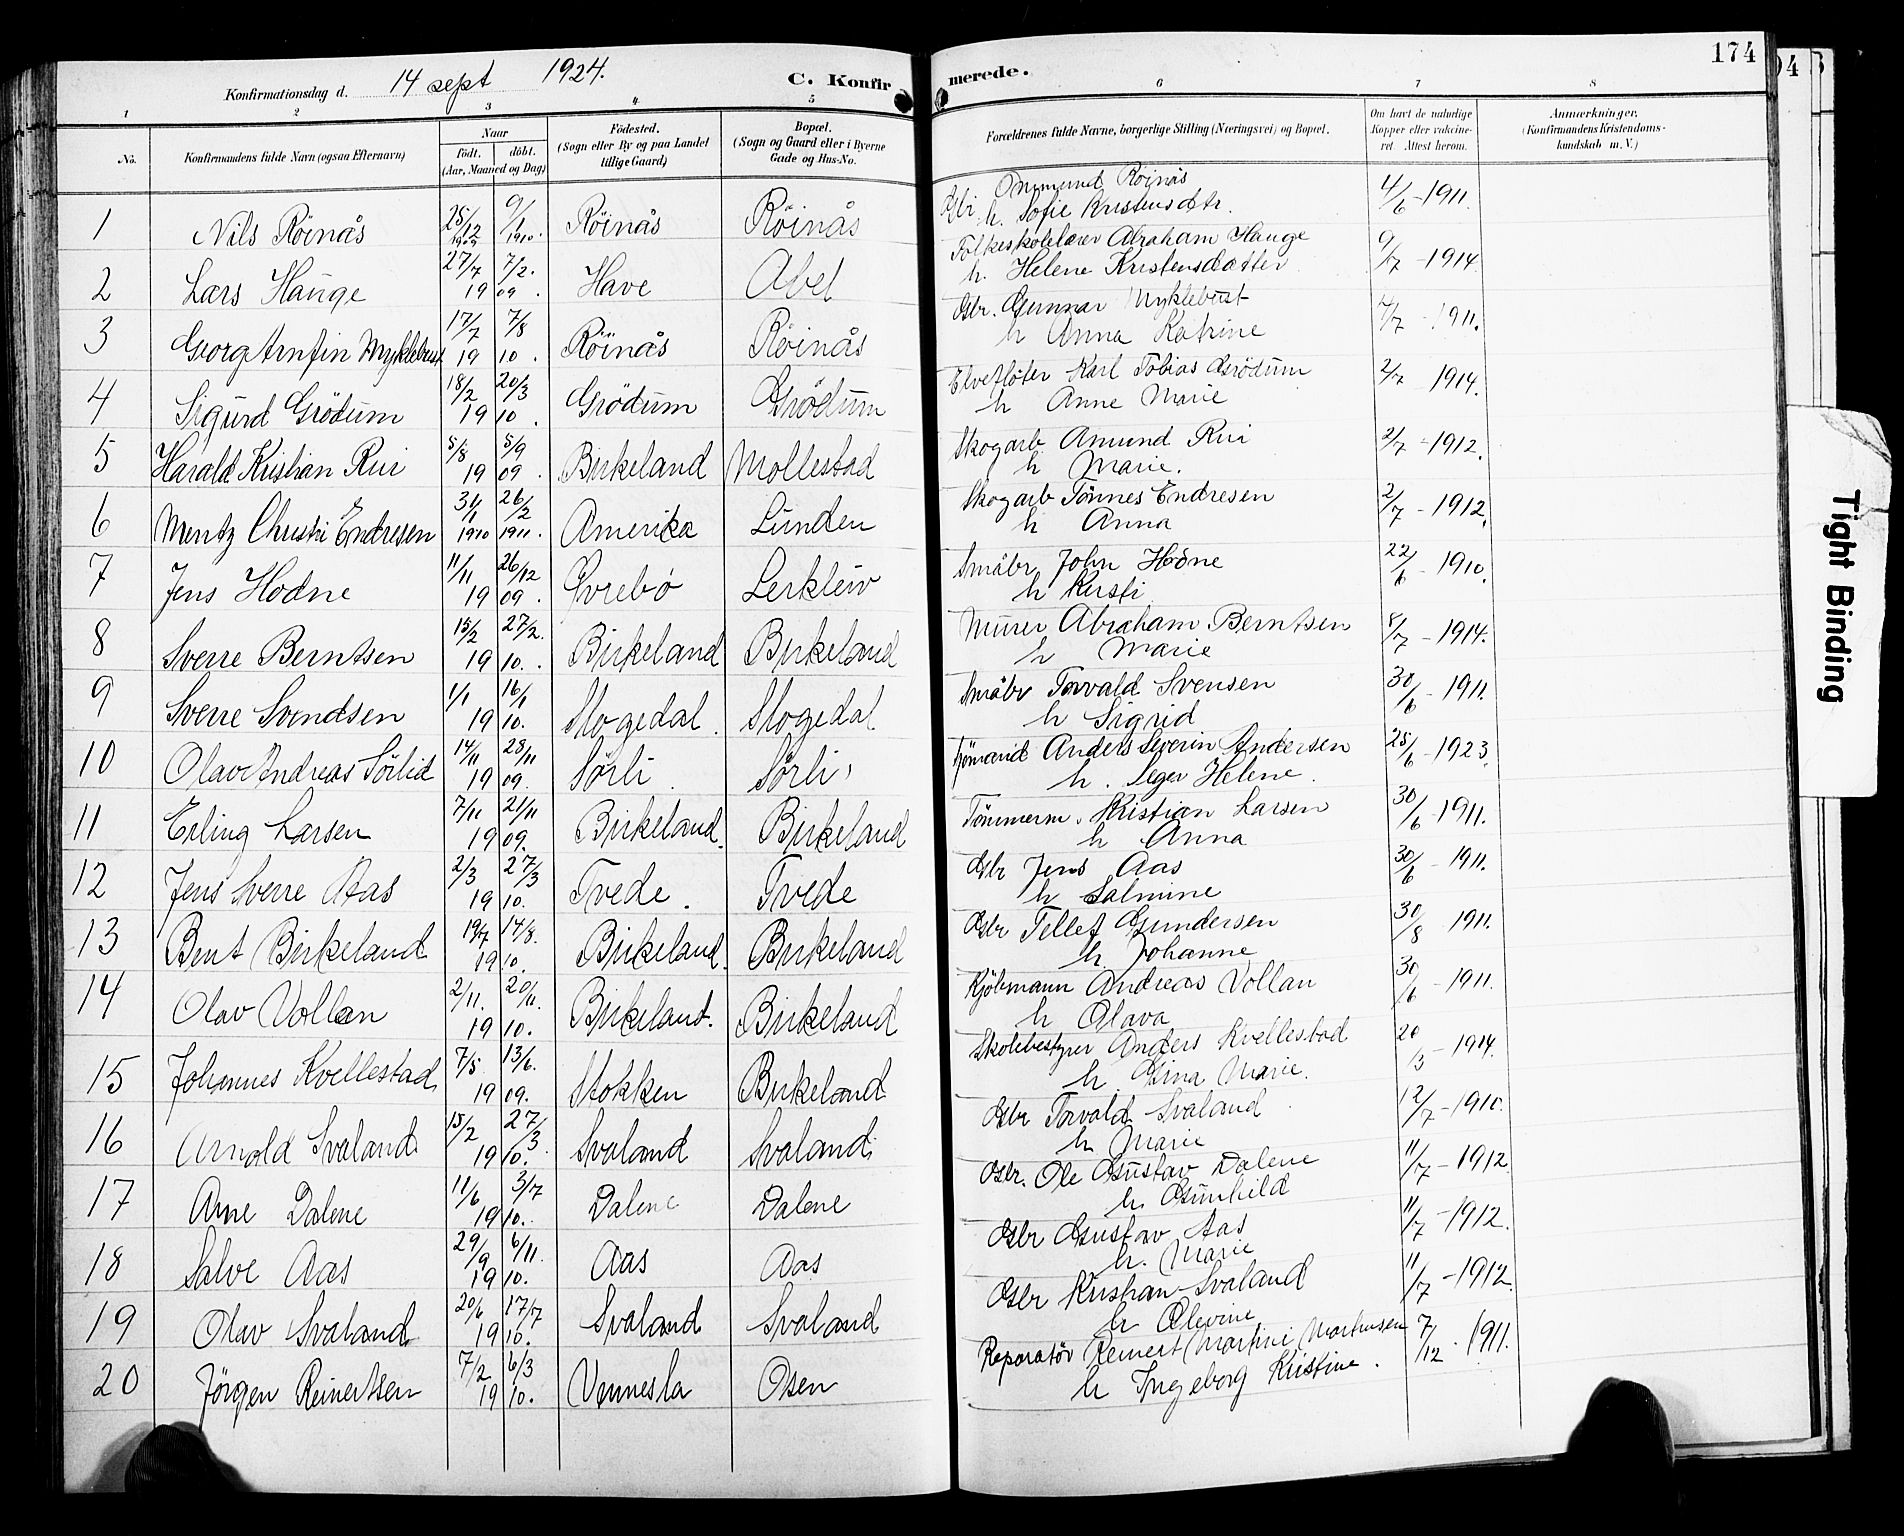 174
Konfirmationsdag d. 14 sept 1924. C. Konfirmerede.
1 2 3 4 5 6 7 8
No. Konfirmandens fulde Navn (ogsaa Efternavn) Naar født. døbt. (Aar, Maaned og Dag) Fødested. (Sogn eller By og paa Landet tillige Gaard) Bopæl. (Sogn og Gaard eller i Byerne Gade og Hus-No. Forældrenes fulde Navne, borgerlige Stilling (Næringsvei) og Bopæl. Om havt de naturlige Kopper eller vaccineret. Attest herom. Anmærkninger. (Konfirmandens Kristendomskundskab m. V.)
1 Nils Röinås 25/12 1909 9/1 1910. Röinås Röinås Gbr. Ommund Röinås 4/6-1911.
h. Sofie Kristensdtr.
2 Lars Hauge 27/7 7/2. 19 09. Have Abel Folkeskolelærer Abraham Hauge 9/7-1914
h. Helene Kristensdatter
3 Georg Arnfin Myklebust 17/7 7/8 19 10. Röinås Röinås Gbr. Gunnar Myklebust 4/7-1911.
h Anna Katrine
4 Sigurd Grödum 18/2 20/3 19 10. Grödum Grödum Elvefløter Karl Tobias Grödum 2/7 1914.
h Anne Marie
5 Harald Kristian Rui 5/8 5/9 19 09. Birkeland Mollestad Skogarb Amund Rui 2/7-1912.
h Marie.
6 Mentz Christi Endresen 3/11 1910 26/2 1911. Amerika Lunden Skogarb Tönnes Endresen 2/7-1912.
h Anna
7 Jens Hodne 11/11 26/12 19 09. Øvrebø Lerkleiv Småbr John Hodne 22/6-1910.
h Kirsti
8 Sverre Berntsen 15/2 27/2. 19 10. Birkeland Birkeland Murer Abraham Berntsen 8/7-1914.
h Marie
9 Sverre Svendsen 1/1 16/1 19 10. Stogedal Stogedal Småbr Torvald Svensen 30/6-1911.
h Sigrid
10 Olav Andreas Sörlid 14/11 28/11 19 09. Sørli Sørli Sjömand Anders Severin Andersen 25/6-1923.
h. Seger Helene.
11 Erling Larsen 7/11 21/11 19 09. Birkeland. Birkeland Tömmerm. Kristian Larsen 30/6-1911.
h Anna
12 Jens Sverre Aas 2/3 27/3 19 10. Tvede. Tvede Gbr Jens Aas 30/6-1911.
h Salmine
13 Bent Birkeland 19/7 14/8. 19 10. Birkeland. Birkeland Gbr Tellef Gundersen 30/8 1911.
h Johanne
14 Olav Vollan 2/11. 20/11. 19 10. Birkeland. Birkeland Kjöbmann Andreas Vollan 30/6-1911.
h Olava
15 Johannes Kvellestad 7/5 13/6. 19 09. Stokken Birkeland Skolebestyrer Anders Kvellestad 20/3-1914.
h Gina Marie.
16 Arnold Svaland 15/2 27/3 19 10. Svaland Svaland Gbr Torvald Svaland 12/7-1910.
h Marie
17 Arne Dalene 11/6 3/7 19 10. Dalene Dalene Gbr. Ole Gustav Dalene 11/7-1912.
h Gunhild
18 Salve Aas 29/9 6/11. 19 10. Aas Aas Gbr Gustav Aas 11/7-1912.
h. Marie
19 Olav Svaland 20/6 17/7 19 10. Svaland Svaland Gbr Kristian Svaland 11/7-1912.
h Olevine
20 Jörgen Reinertsen 7/2 6/3 19 10. Vennesla Osen Reparatör Reinert (Martin) Mortensen 7/12. 1911.
h Ingeborg Kristine.
Tight Binding